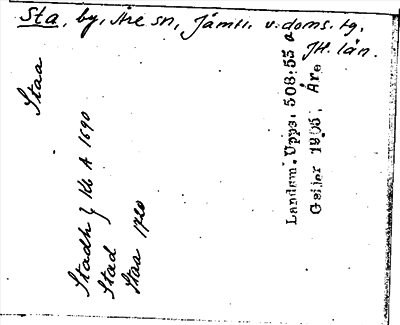 Sta, by, Åre sn, Jämtl. v. doms. tg,
JH. län.
Staa
Stadh } Kb A 1690
Stad
Staa 1720
Landsm. Upps. 508:55 a
Geijer 1905, Åre